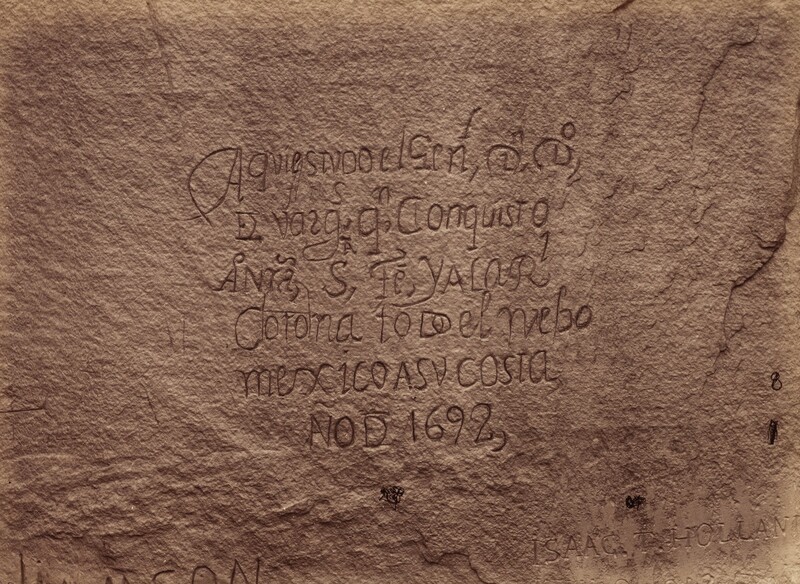 Aquiestuvo el Genl, D, Do,
De vargs, qn, Conquisto
ANra, Sa, Fe, YALaRl
Corona toDo el nuebo
mexico ASV costa,
AÑOD 1692,
8
ISAAC T. HOLLAND